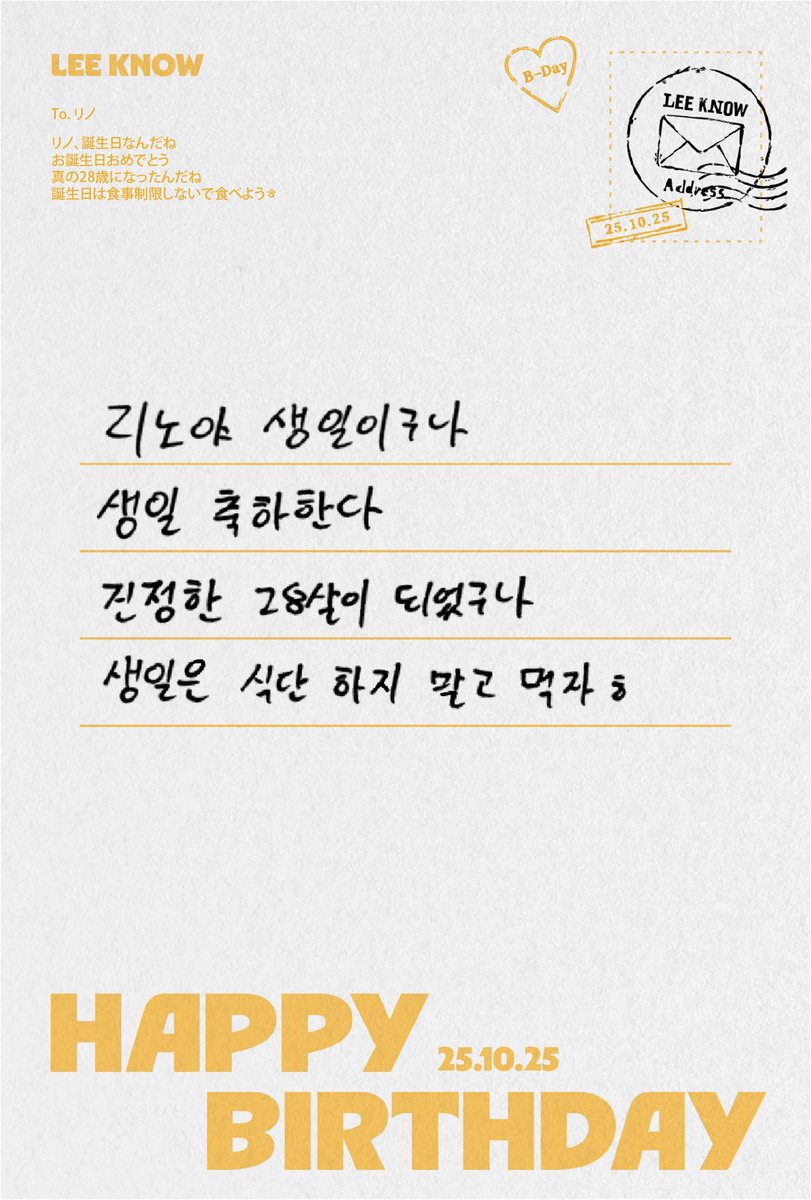 LEE KNOW
To. リノ
リノ、誕生日なんだね
お誕生日おめでとう
真の28歳になったんだね
誕生日は食事制限しないで食べようㅎ
B-Day
LEE KNOW
Address
25.10.25
리노야 생일이구나
생일 축하한다
진정한 28살이 되었구나
생일은 식단 하지 말고 먹자 ㅎ
HAPPY
25.10.25
BIRTHDAY